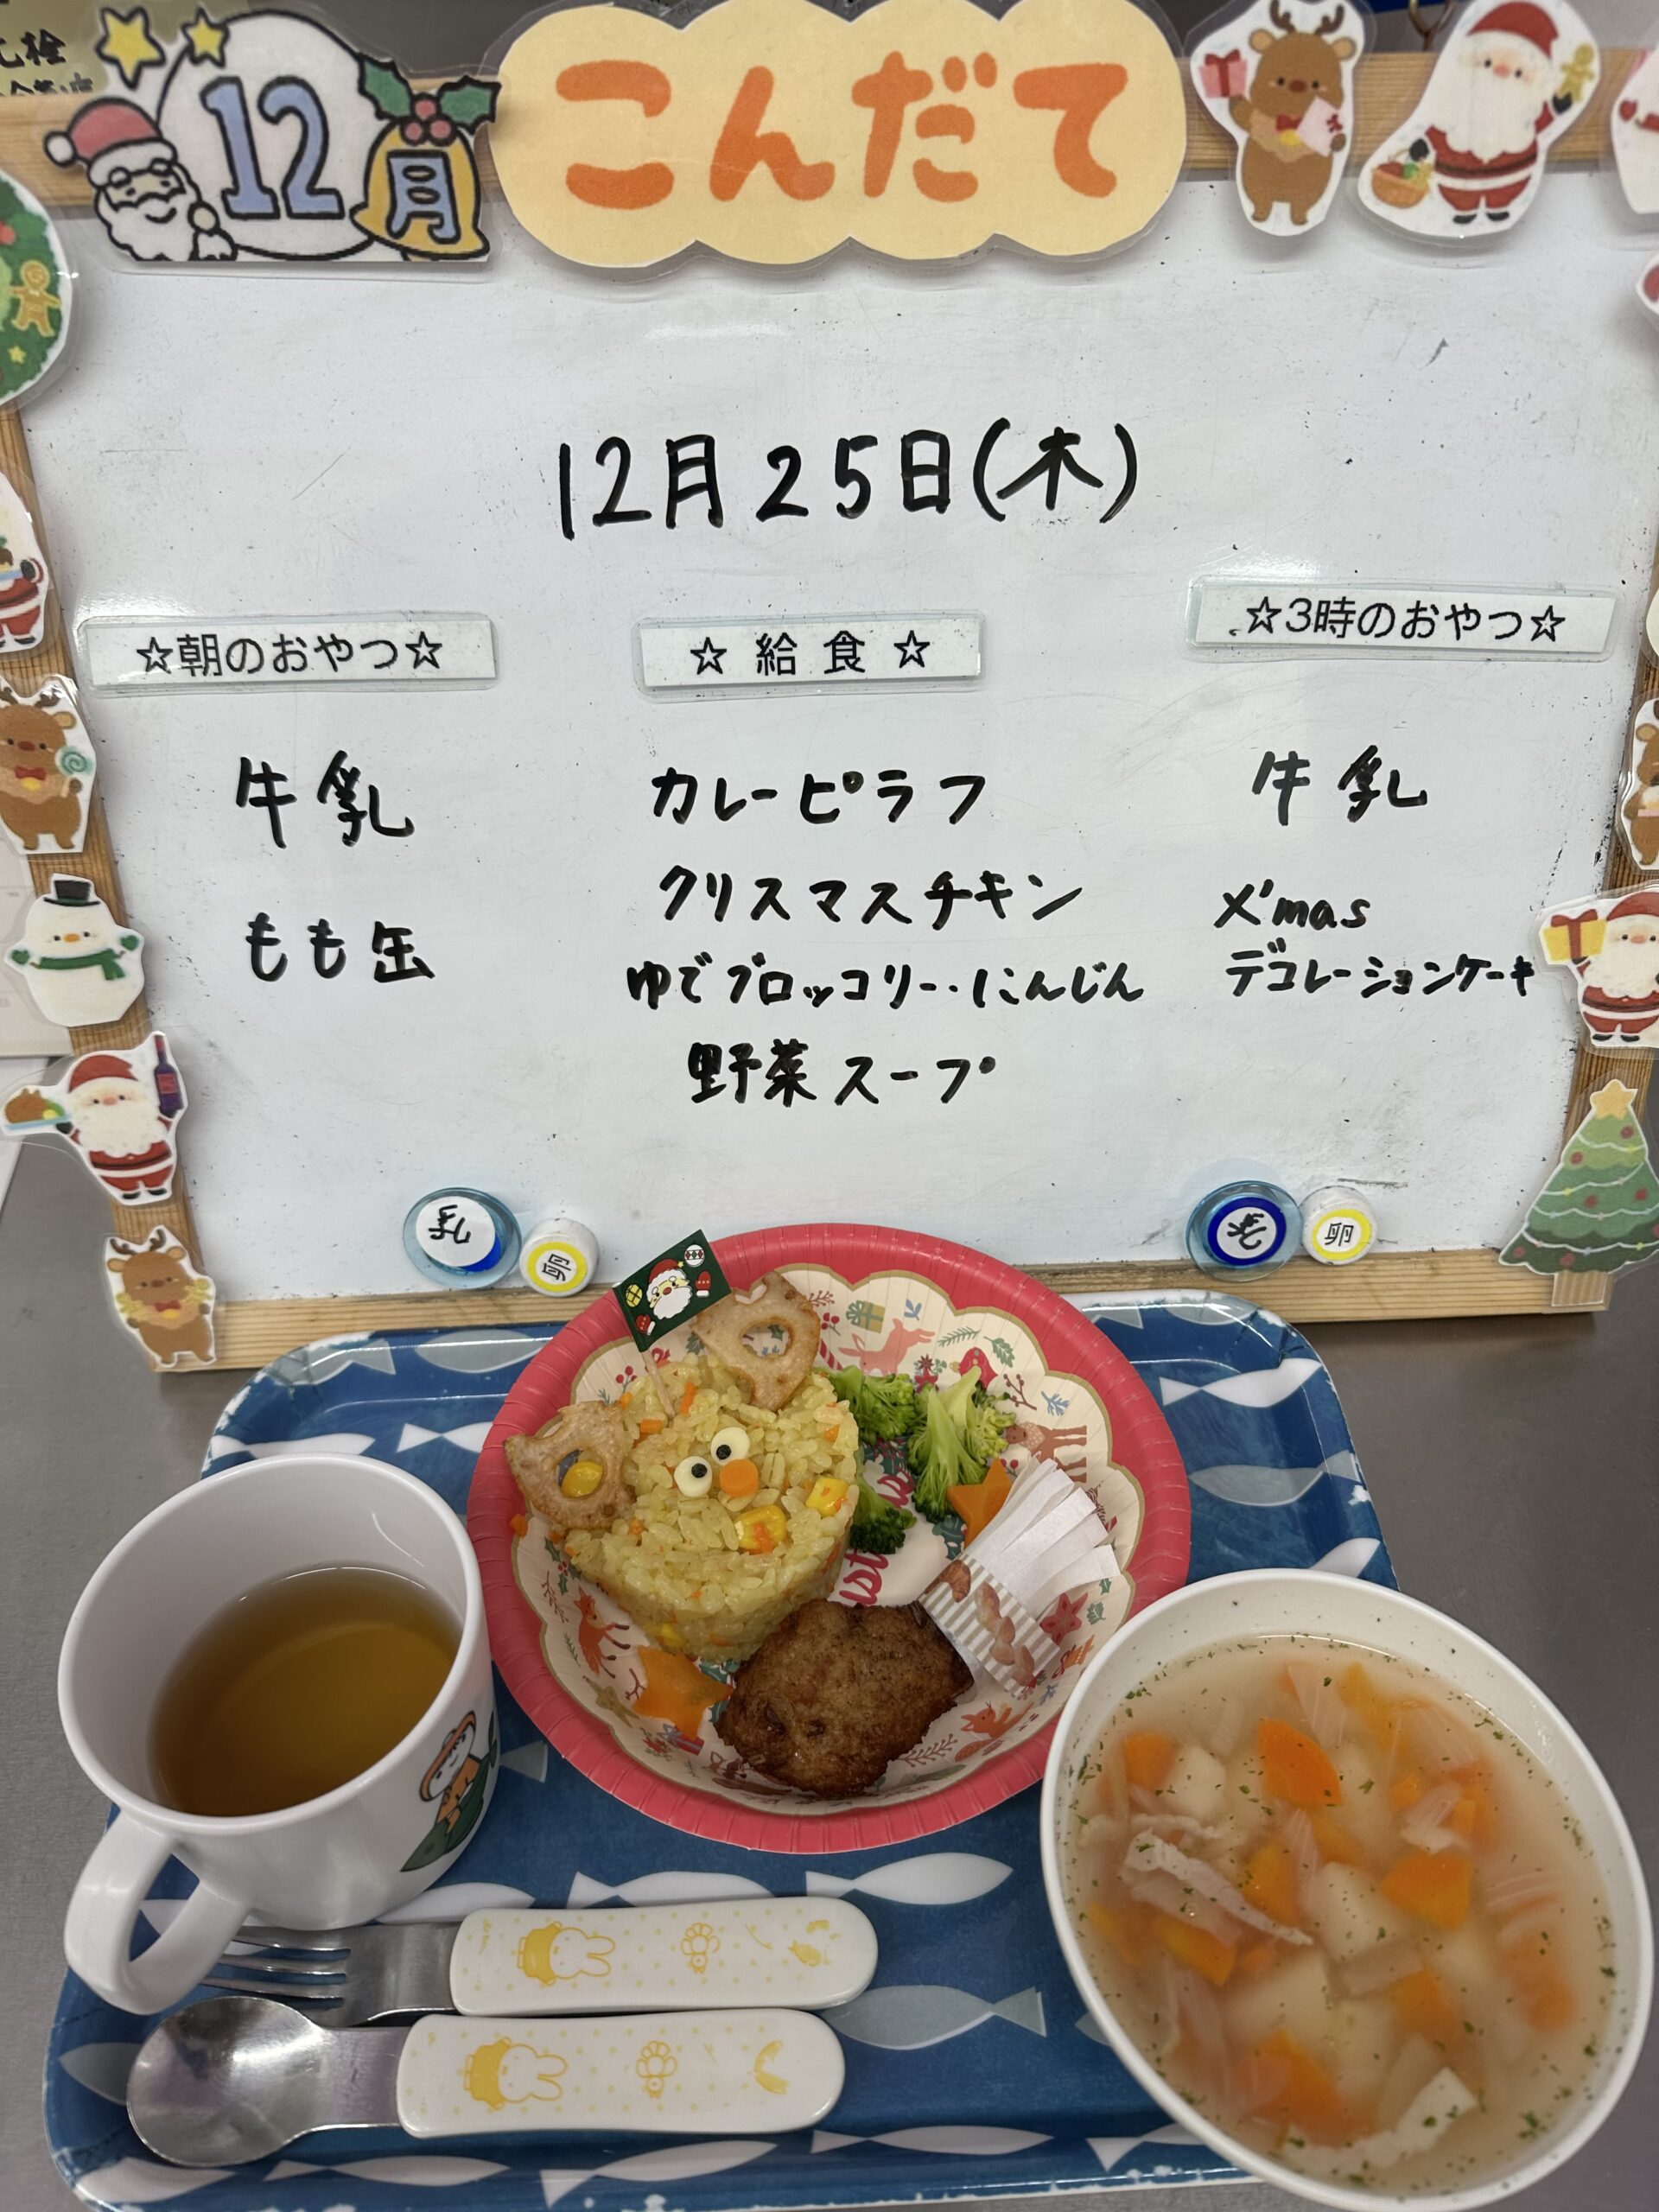 12月
こんだて
12月25日(木)
☆朝のおやつ☆
牛乳
もも缶
☆ 給 食 ☆
カレーピラフ
クリスマスチキン
ゆでブロッコリー・にんじん
野菜スープ
☆3時のおやつ☆
牛乳
X'mas
デコレーションケーキ
乳
卵
乳
卵